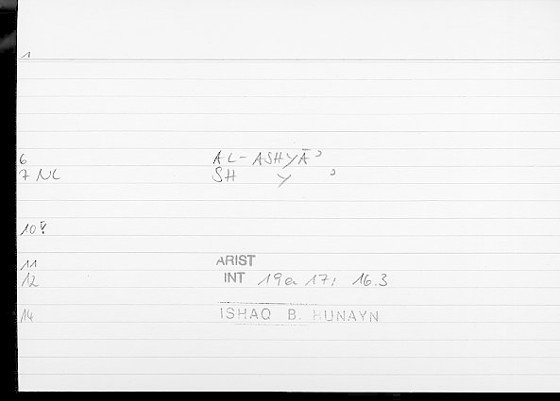 1
6 AL-ASHYĀʾ
7 NL SH Y ʾ
10
11 ARIST
12 INT 19a 17; 16.3
14 ISHAQ B. HUNAYN